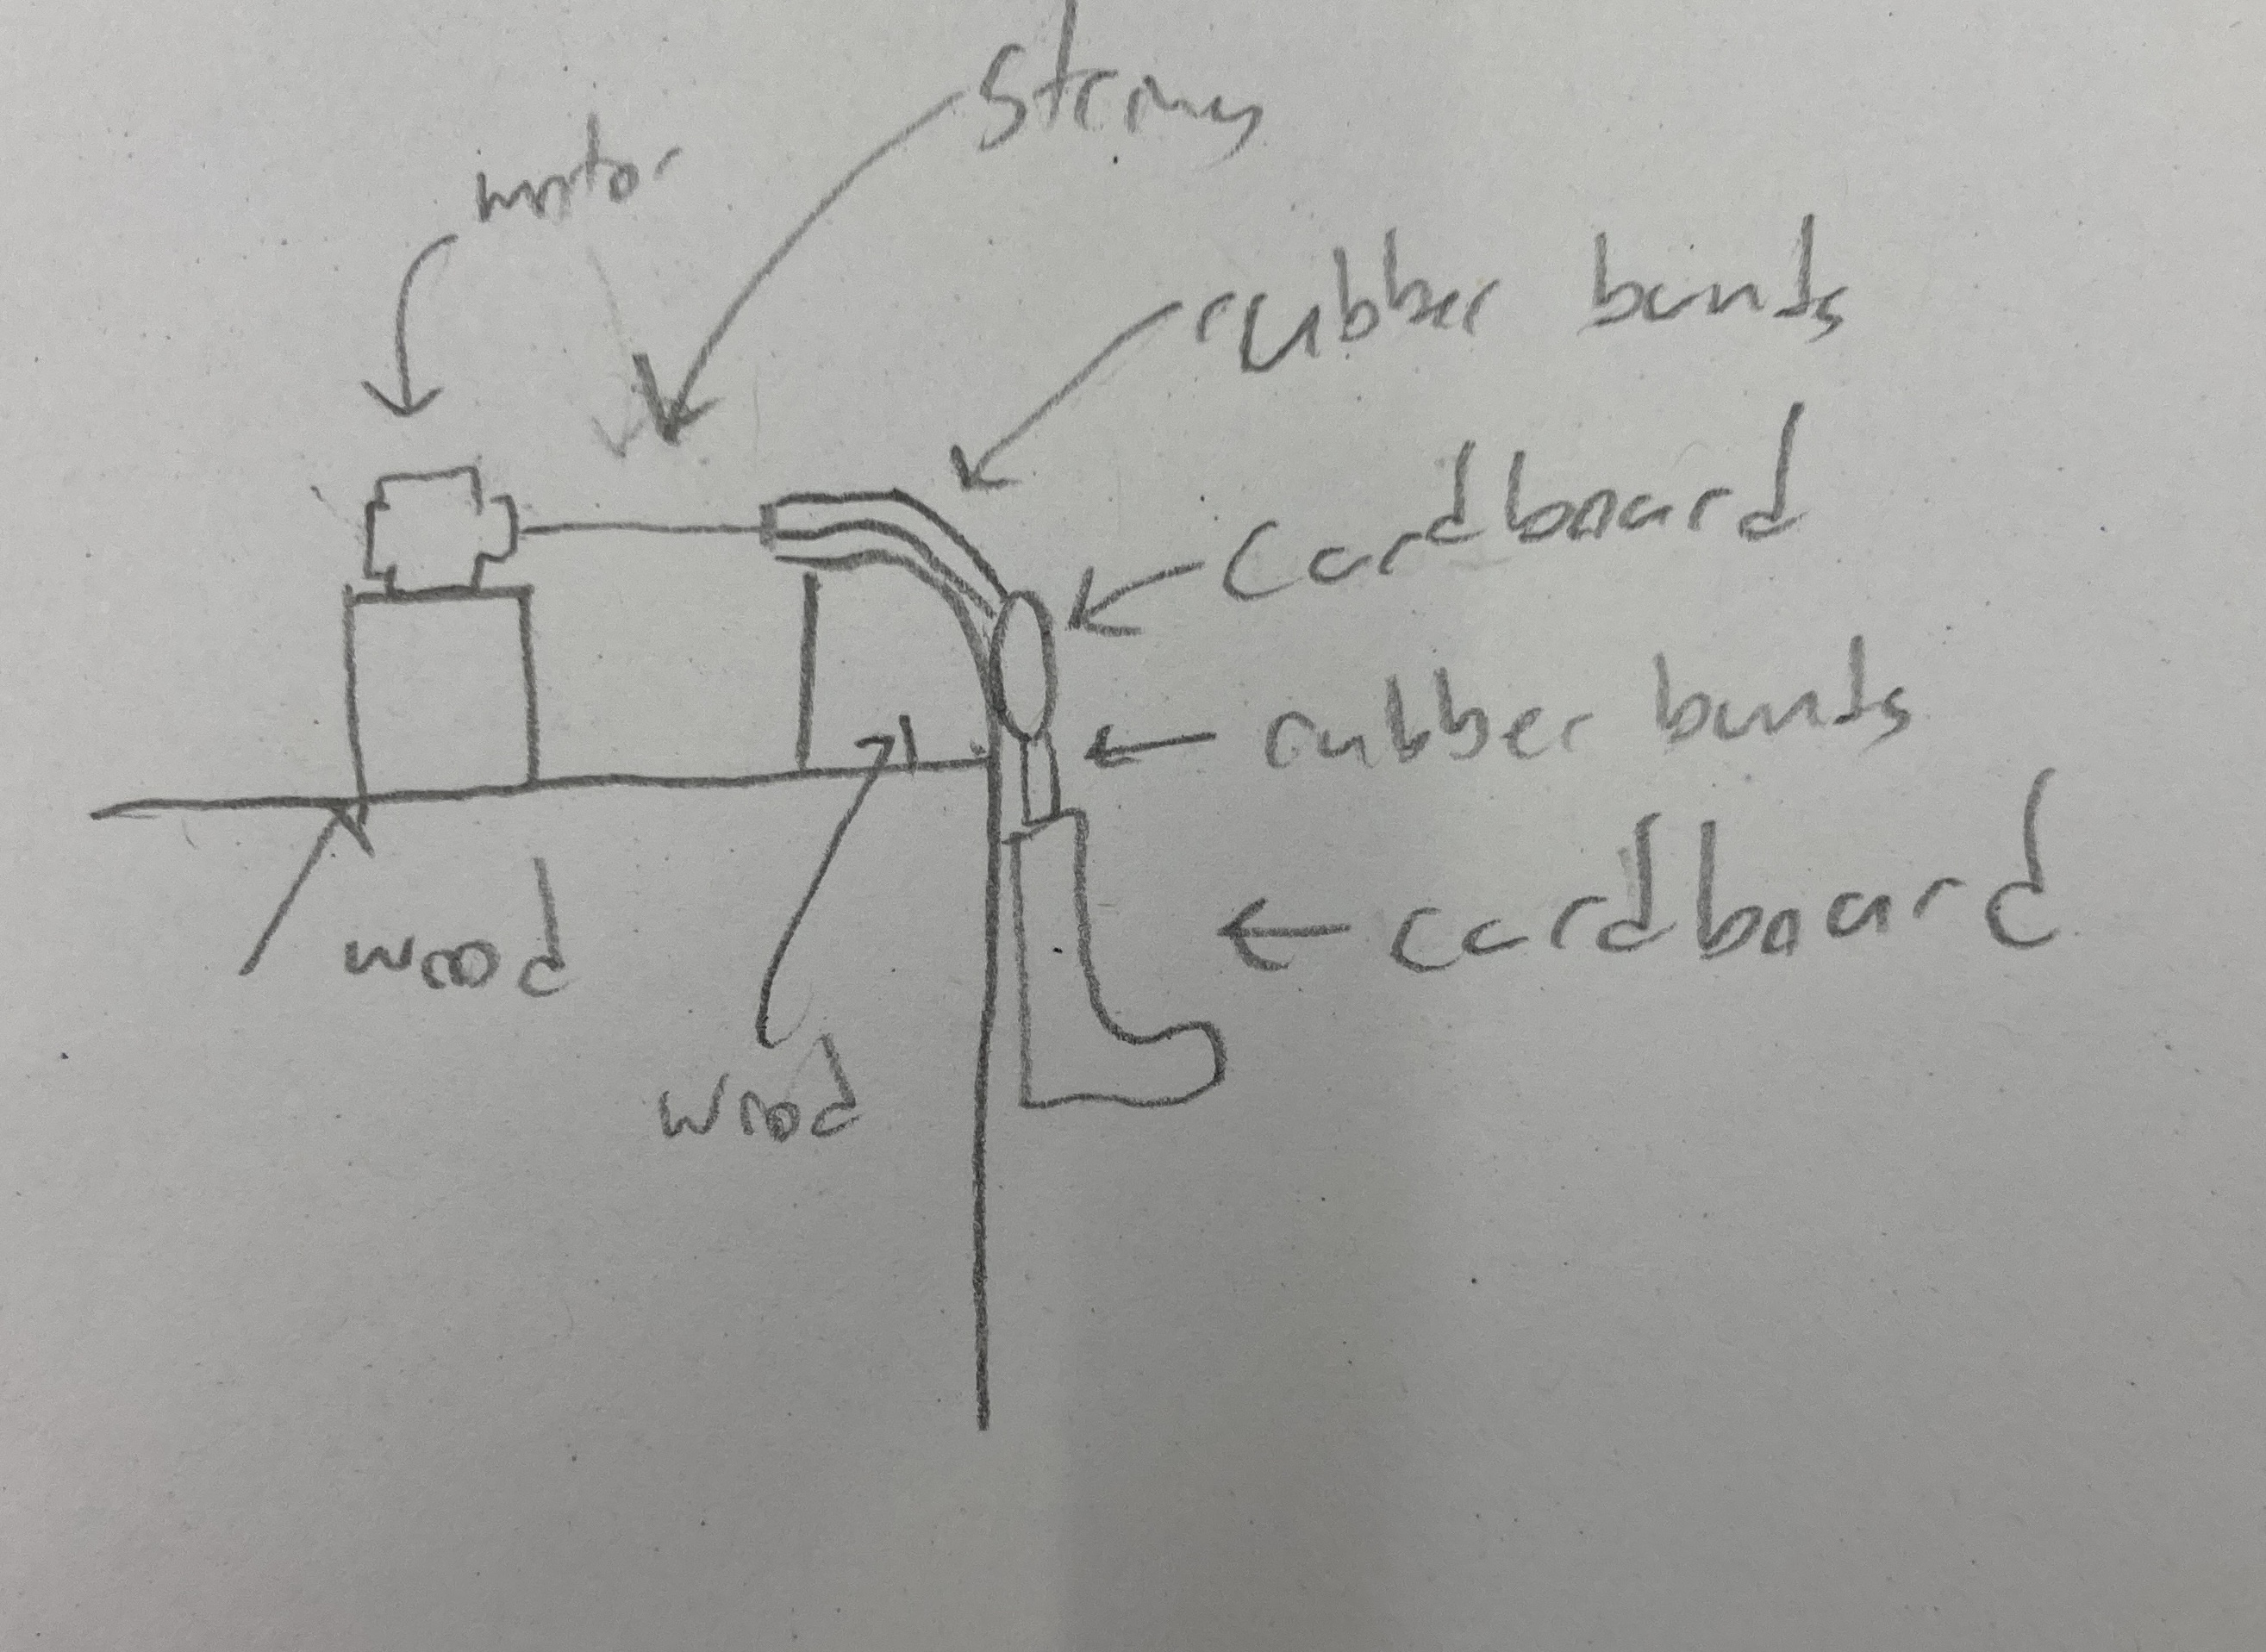 string
motor
rubber bands
cardboard
rubber bands
cardboard
wood
wood